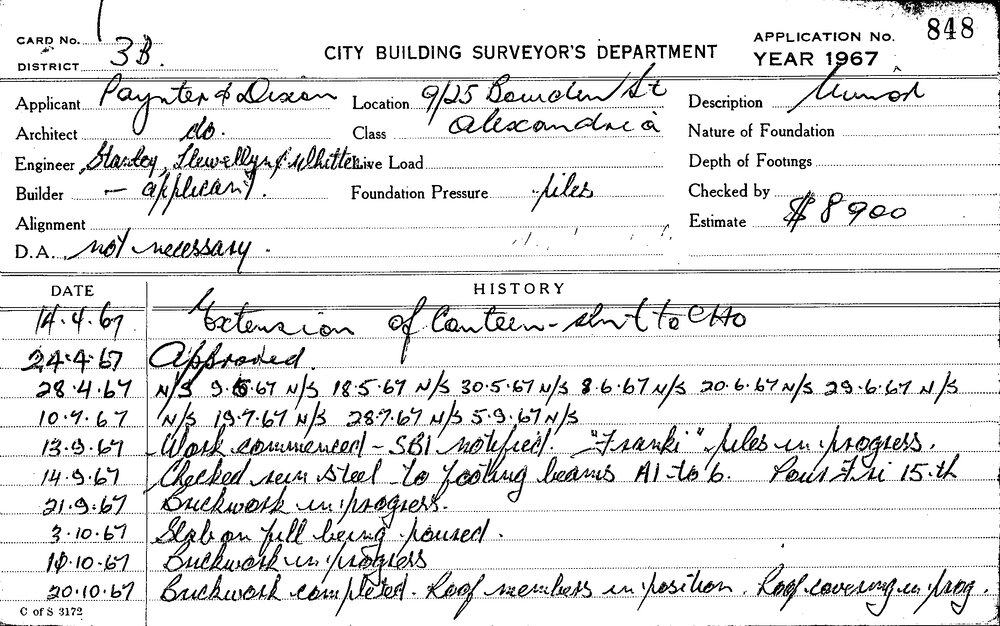 CARD No.
DISTRICT 3B.
CITY BUILDING SURVEYOR'S DEPARTMENT
APPLICATION No. 848
YEAR 1967
Applicant Paynter & Dixon Location 9/25 Bourden St Description Minor
Architect do. Class Alexandria Nature of Foundation
Engineer Stanley, Llewellyn & Whitten Live Load Depth of Footings
Builder - applicant. Foundation Pressure piles Checked by
Alignment Estimate $8900
D.A. not necessary.
DATE HISTORY
14.4.67 Extension of Canteen - shut to CHO
24.4.67 Approved.
28.4.67 N/S 9.5.67 N/S 18.5.67 N/S 30.5.67 N/S 8.6.67 N/S 20.6.67 N/S 29.6.67 N/S
10.7.67 N/S 19.7.67 N/S 28.7.67 N/S 5.9.67 N/S
13.9.67 Work commenced - SBI notified. "Franki" piles in progress.
14.9.67 Checked rein steel to footing beams A1 to 6. Pour Fri 15.th
21.9.67 Brickwork in progress.
3.10.67 Slab on fill being poured.
10.10.67 Brickwork in progress
20.10.67 Brickwork completed. Roof members in position. Roof covering in prog.
C of S 3172